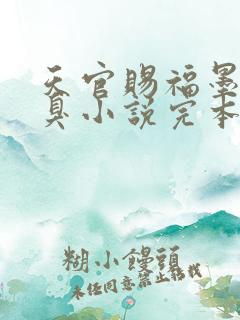 天官赐福墨
真小说完本
糊小馒头
未经同意禁止转载